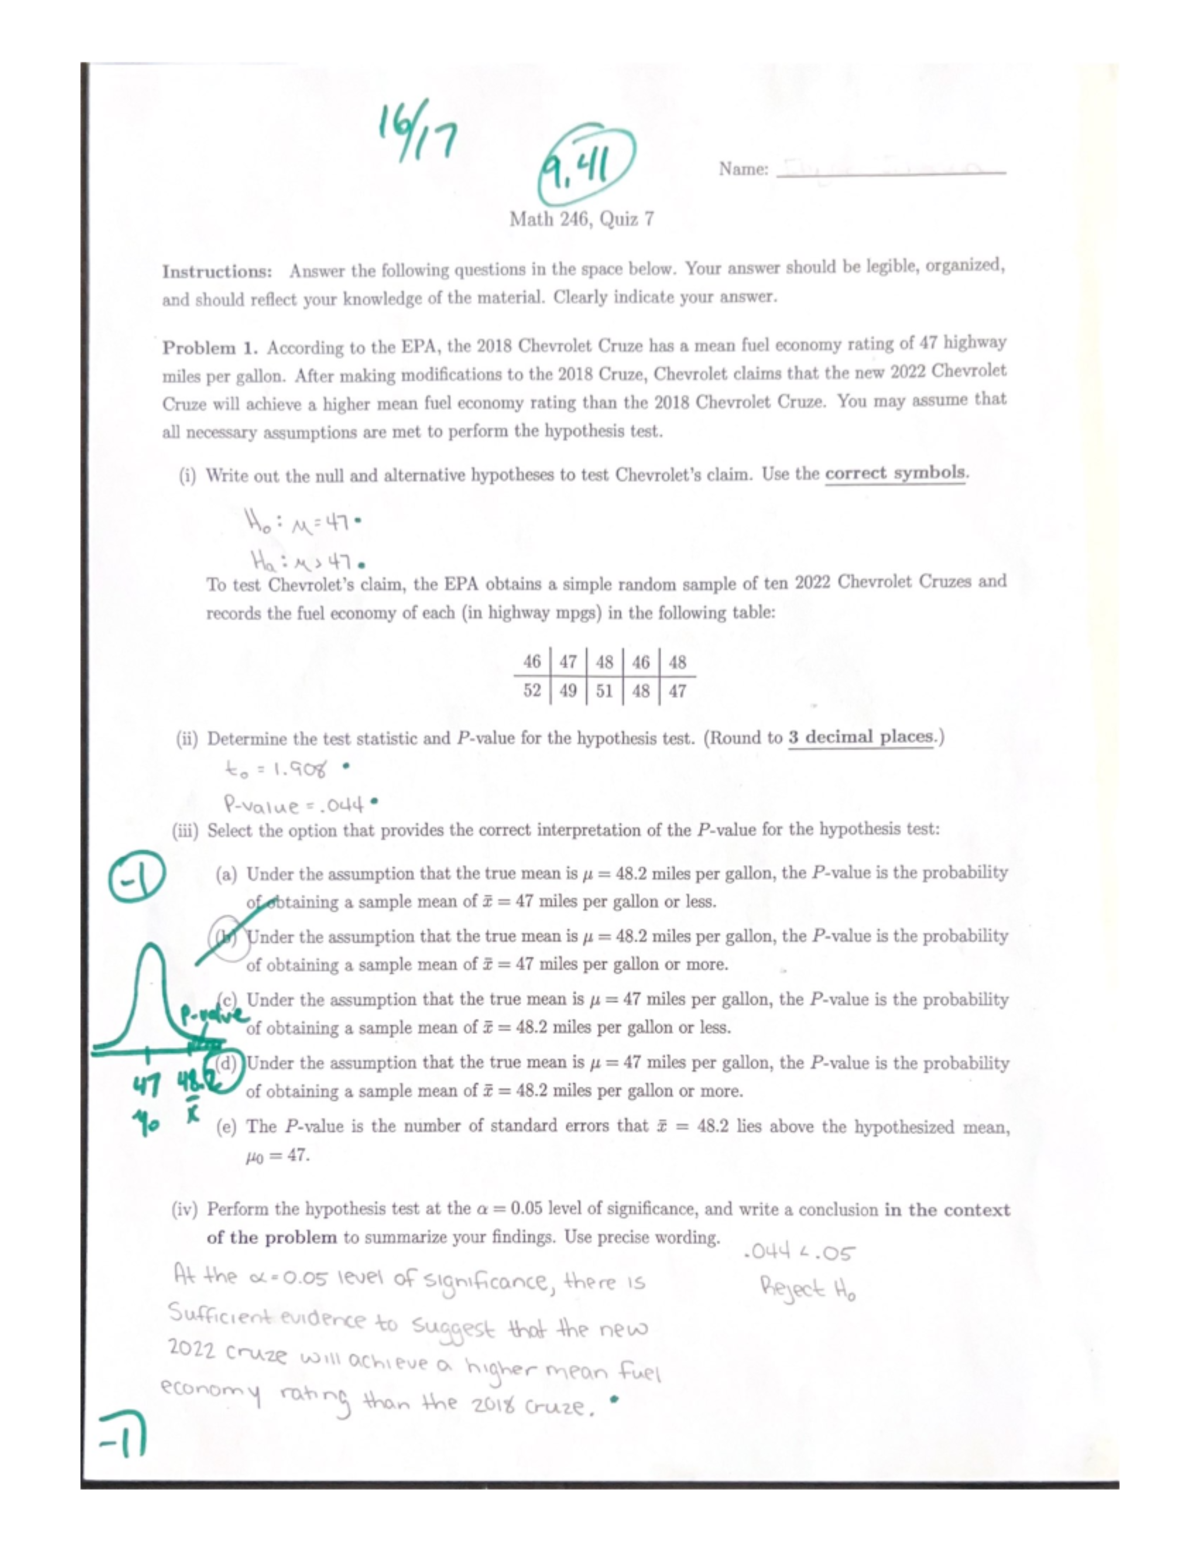 16/17
9.41
Name:
Math 246, Quiz 7
Instructions: Answer the following questions in the space below. Your answer should be legible, organized,
and should reflect your knowledge of the material. Clearly indicate your answer.
Problem 1. According to the EPA, the 2018 Chevrolet Cruze has a mean fuel economy rating of 47 highway
miles per gallon. After making modifications to the 2018 Cruze, Chevrolet claims that the new 2022 Chevrolet
Cruze will achieve a higher mean fuel economy rating than the 2018 Chevrolet Cruze. You may assume that
all necessary assumptions are met to perform the hypothesis test.
(i) Write out the null and alternative hypotheses to test Chevrolet's claim. Use the correct symbols.
H₀: μ = 47
Hₐ: μ > 47
To test Chevrolet's claim, the EPA obtains a simple random sample of ten 2022 Chevrolet Cruzes and
records the fuel economy of each (in highway mpgs) in the following table:
46 47 48 46 48
52 49 51 48 47
(ii) Determine the test statistic and P-value for the hypothesis test. (Round to 3 decimal places.)
t₀ = 1.908
P-value = .044
(iii) Select the option that provides the correct interpretation of the P-value for the hypothesis test:
-1
(a) Under the assumption that the true mean is μ = 48.2 miles per gallon, the P-value is the probability
of obtaining a sample mean of x̄ = 47 miles per gallon or less.
(b) Under the assumption that the true mean is μ = 48.2 miles per gallon, the P-value is the probability
of obtaining a sample mean of x̄ = 47 miles per gallon or more.
(c) Under the assumption that the true mean is μ = 47 miles per gallon, the P-value is the probability
P-value
of obtaining a sample mean of x̄ = 48.2 miles per gallon or less.
(d) Under the assumption that the true mean is μ = 47 miles per gallon, the P-value is the probability
47 48.2
of obtaining a sample mean of x̄ = 48.2 miles per gallon or more.
μ₀ x̄
(e) The P-value is the number of standard errors that x̄ = 48.2 lies above the hypothesized mean,
μ₀ = 47.
(iv) Perform the hypothesis test at the α = 0.05 level of significance, and write a conclusion in the context
of the problem to summarize your findings. Use precise wording.
.044 < .05
Reject H₀
At the α = 0.05 level of significance, there is
sufficient evidence to suggest that the new
2022 cruze will achieve a higher mean fuel
economy rating than the 2018 cruze.
-1